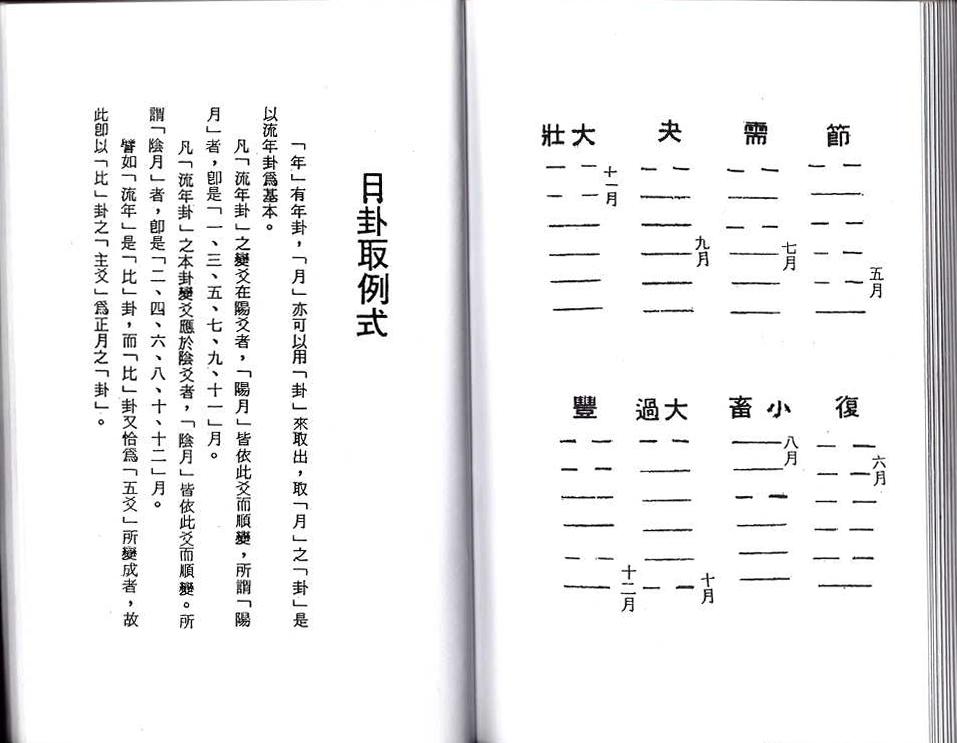 節
五月
需
七月
夬
九月
大壯
十一月
復
六月
小畜
八月
大過
十月
豐
十二月
日卦取例式
「年」有年卦，「月」亦可以用「卦」來取出，取「月」之「卦」是
以流年卦爲基本。
凡「流年卦」之變爻在陽爻者，「陽月」皆依此爻而順變，所謂「陽
月」者，卽是「一、三、五、七、九、十一」月。
凡「流年卦」之本卦變爻應於陰爻者，「陰月」皆依此爻而順變。所
謂「陰月」者，卽是「二、四、六、八、十、十二」月。
譬如「流年」是「比」卦，而「比」卦又恰爲「五爻」所變成者，故
此卽以「比」卦之「主爻」爲正月之「卦」。